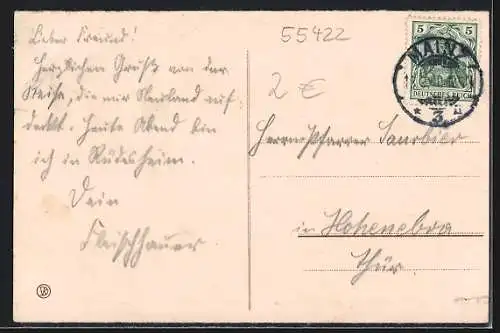 Lieber Freund!
Herzlichen Gruß von der
Reise, die mir Neuland auf-
deckt. Heute Abend bin
ich in Rüdesheim.
Dein
Fleischhauer
55422
2 €
5 5
DEUTSCHES REICH
MAINZ
* 3
Herrn Pfarrer Saurbier
in Hohenebra
Thür.